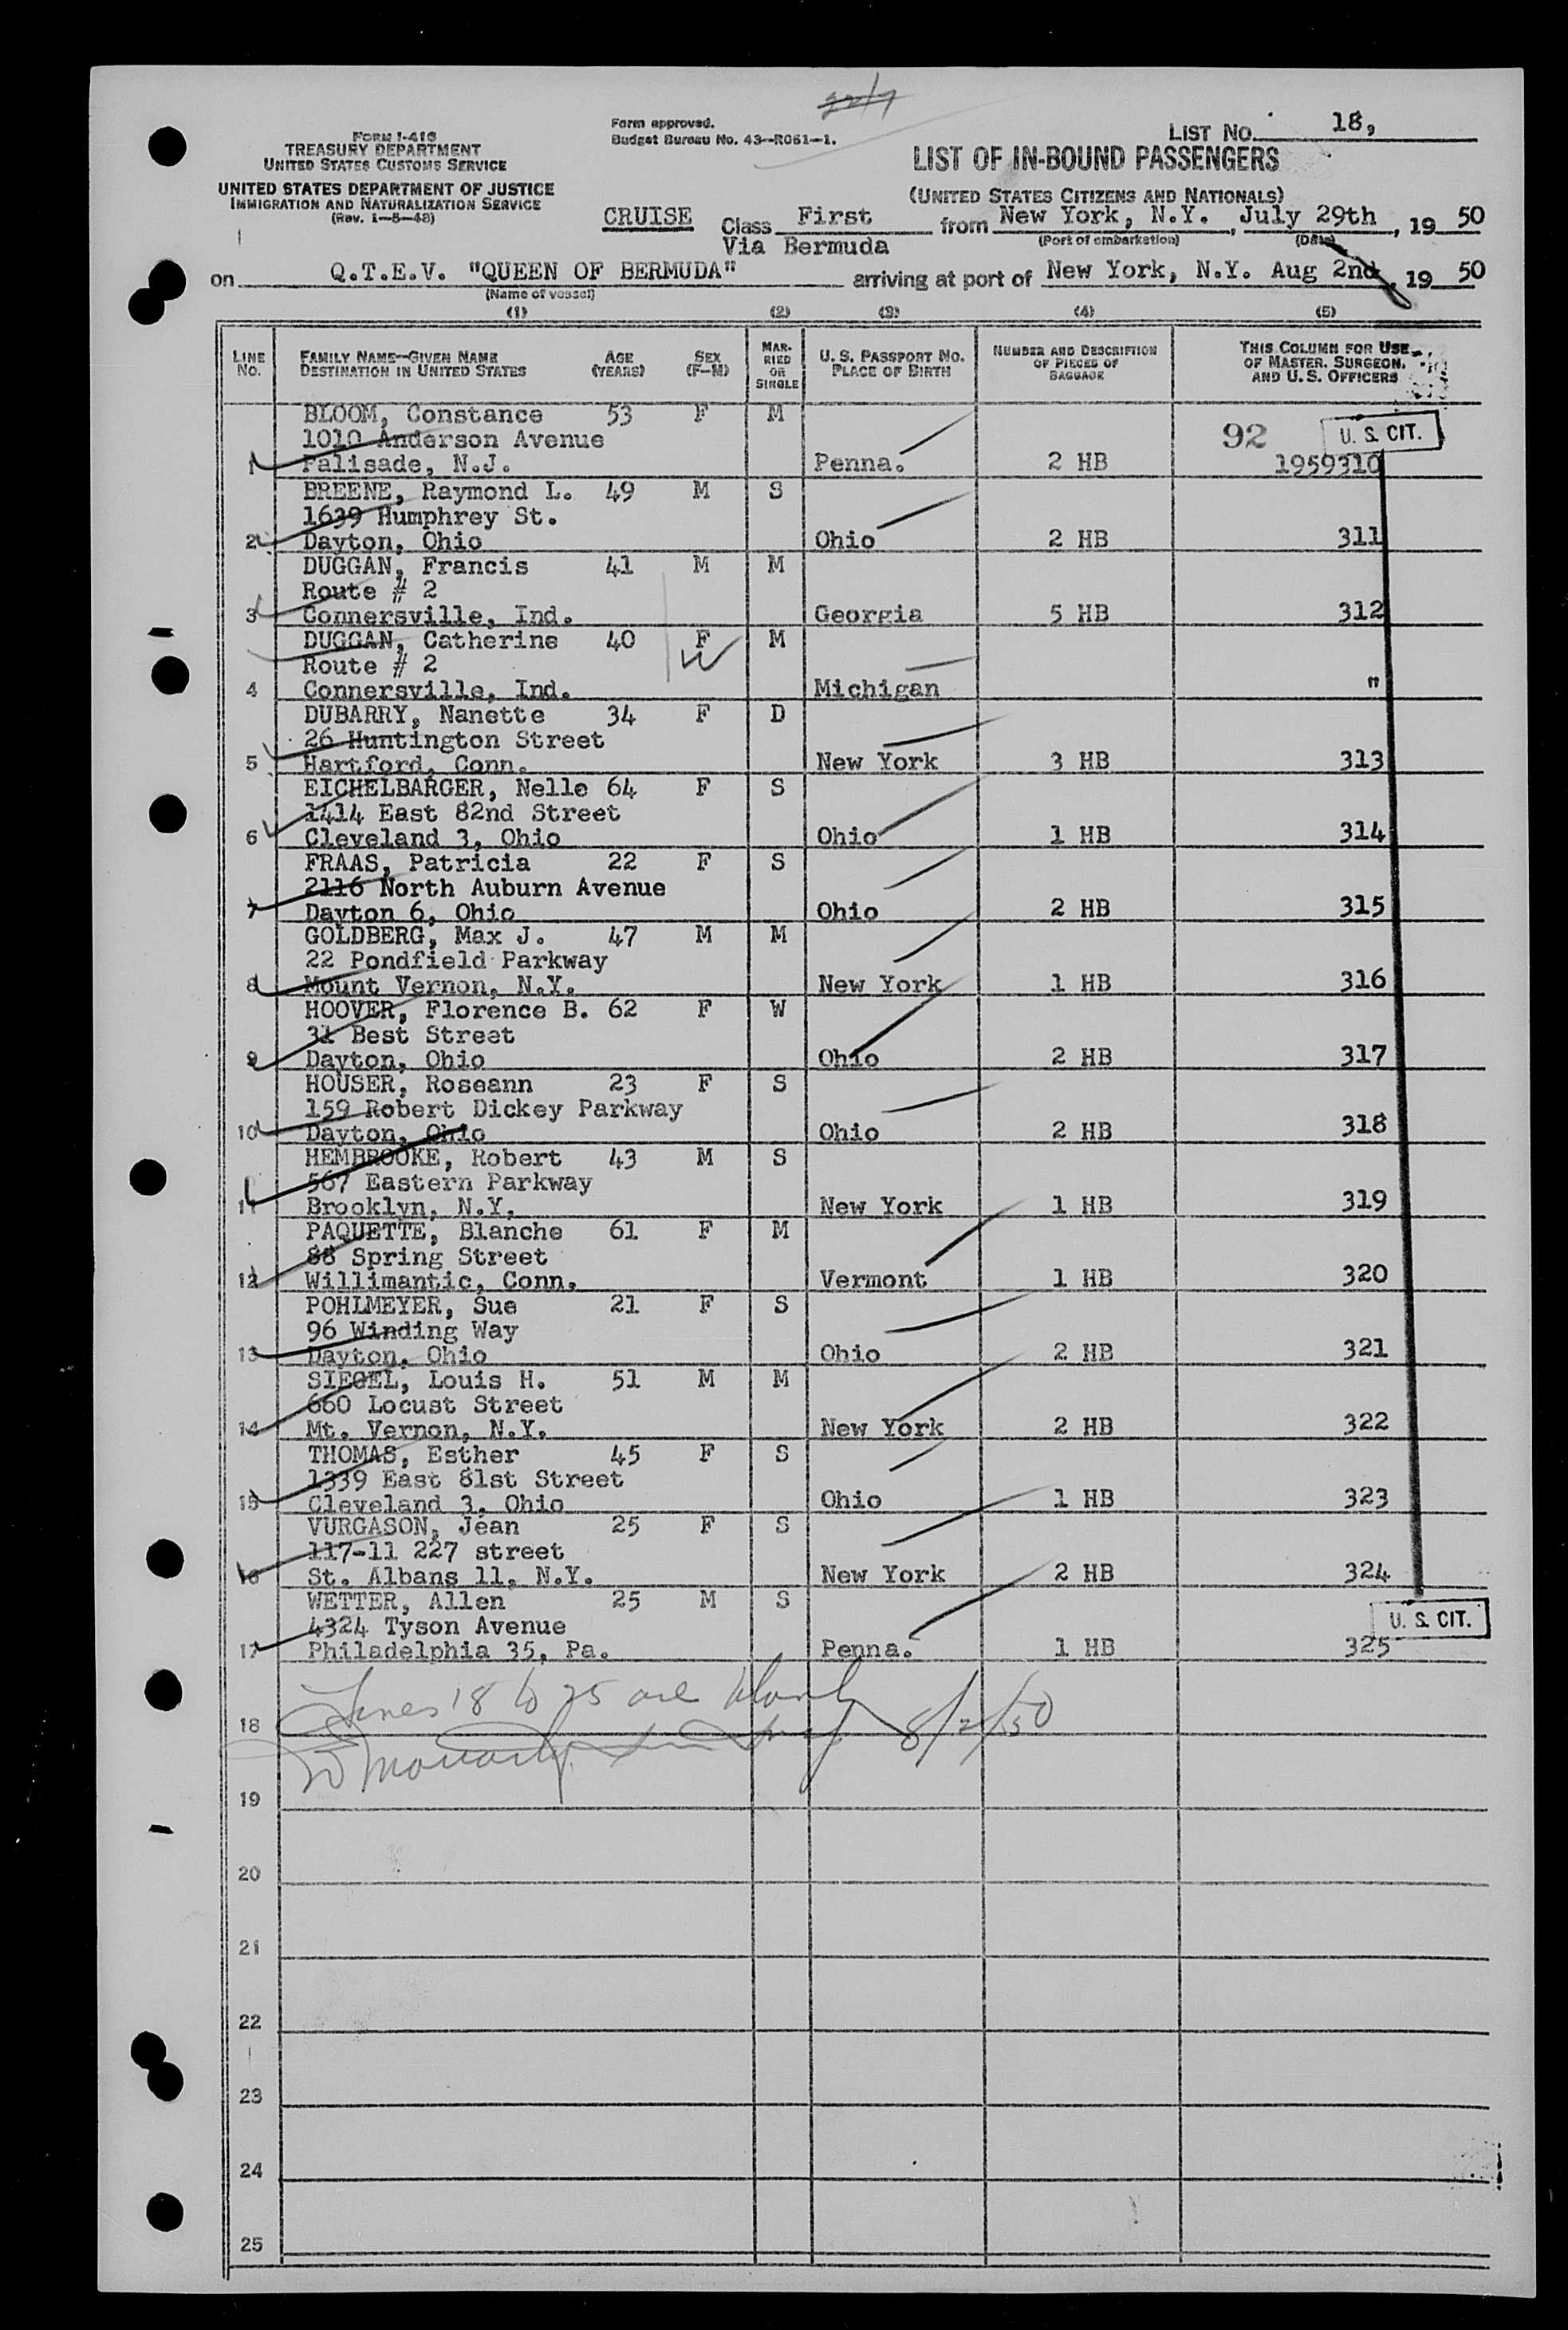 22/7
FORM I-418
TREASURY DEPARTMENT
UNITED STATES CUSTOMS SERVICE
UNITED STATES DEPARTMENT OF JUSTICE
IMMIGRATION AND NATURALIZATION SERVICE
(Rev. 1-5-48)
Form approved.
Budget Bureau No. 43-R061-1.
LIST NO. 18,
LIST OF IN-BOUND PASSENGERS
(UNITED STATES CITIZENS AND NATIONALS)
CRUISE Class First from New York, N.Y., July 29th, 1950
Via Bermuda (Port of embarkation) (Date)
on Q.T.E.V. "QUEEN OF BERMUDA" arriving at port of New York, N.Y. Aug 2nd, 1950
(Name of vessel)
(1) (2) (3) (4) (5)
LINE NO. FAMILY NAME—GIVEN NAME DESTINATION IN UNITED STATES AGE (YEARS) SEX (F-M) MARRIED OR SINGLE U. S. PASSPORT NO. PLACE OF BIRTH NUMBER AND DESCRIPTION OF PIECES OF BAGGAGE THIS COLUMN FOR USE OF MASTER, SURGEON, AND U. S. OFFICERS
BLOOM, Constance 53 F M
1010 Anderson Avenue 92 U. S. CIT.
1 Palisade, N.J. Penna. 2 HB 1959310
BREENE, Raymond L. 49 M S
1639 Humphrey St.
2 Dayton, Ohio Ohio 2 HB 311
DUGGAN, Francis 41 M M
Route # 2
3 Connersville, Ind. Georgia 5 HB 312
DUGGAN, Catherine 40 F M
Route # 2 W
4 Connersville, Ind. Michigan "
DUBARRY, Nanette 34 F D
26 Huntington Street
5 Hartford, Conn. New York 3 HB 313
EICHELBARGER, Nelle 64 F S
1414 East 82nd Street
6 Cleveland 3, Ohio Ohio 1 HB 314
FRAAS, Patricia 22 F S
2116 North Auburn Avenue
7 Dayton 6, Ohio Ohio 2 HB 315
GOLDBERG, Max J. 47 M M
22 Pondfield Parkway
8 Mount Vernon, N.Y. New York 1 HB 316
HOOVER, Florence B. 62 F W
31 Best Street
9 Dayton, Ohio Ohio 2 HB 317
HOUSER, Roseann 23 F S
159 Robert Dickey Parkway
10 Dayton, Ohio Ohio 2 HB 318
HEMBROOKE, Robert 43 M S
567 Eastern Parkway
11 Brooklyn, N.Y. New York 1 HB 319
PAQUETTE, Blanche 61 F M
88 Spring Street
12 Willimantic, Conn. Vermont 1 HB 320
POHLMEYER, Sue 21 F S
96 Winding Way
13 Dayton, Ohio Ohio 2 HB 321
SIEGEL, Louis H. 51 M M
660 Locust Street
14 Mt. Vernon, N.Y. New York 2 HB 322
THOMAS, Esther 45 F S
1339 East 81st Street
15 Cleveland 3, Ohio Ohio 1 HB 323
VURGASON, Jean 25 F S
117-11 227 street
16 St. Albans 11, N.Y. New York 2 HB 324
WETTER, Allen 25 M S
4324 Tyson Avenue U. S. CIT.
17 Philadelphia 35, Pa. Penna. 1 HB 325
Lines 18 to 25 are blank
18 8/2/50
19
20
21
22
23
24
25